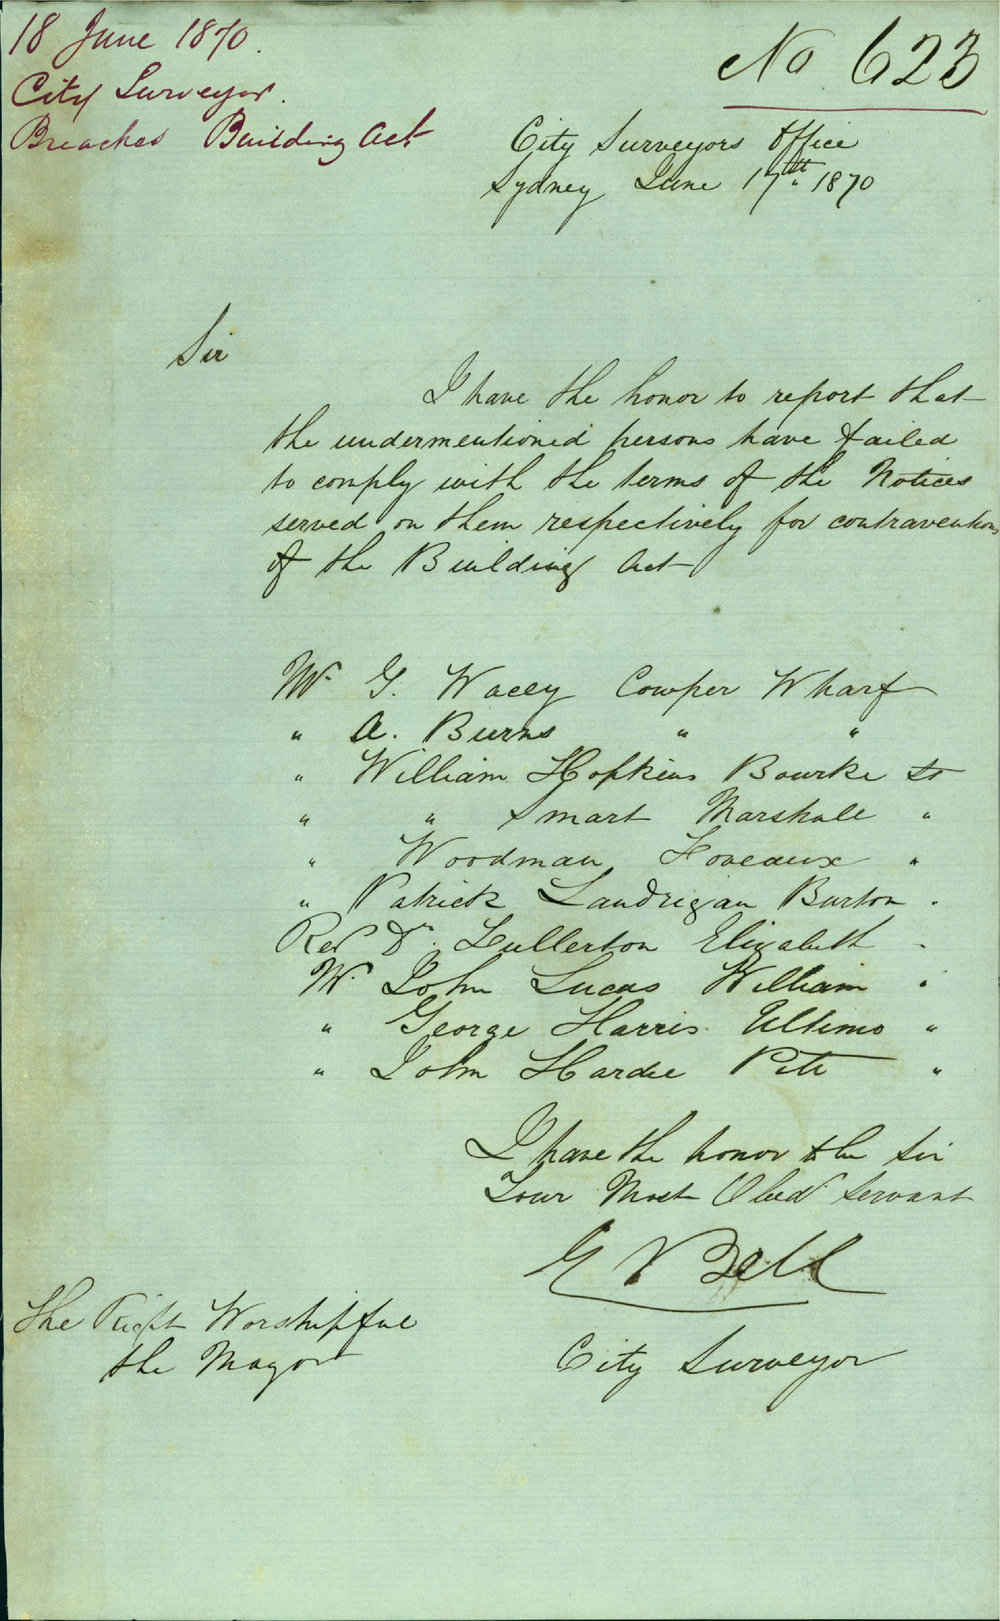 18 June 1870.
City Surveyor.
Breaches Building Act
No 623
City Surveyors Office
Sydney June 17th. 1870
Sir
I have the honor to report that
the undermentioned persons have failed
to comply with the terms of the Notices
served on them respectively for contraventions
of the Building Act
Mr G. Wacey Cowper Wharf
" A. Burns " "
" William Hopkins Bourke St
" " Smart Marshall "
" Woodman Foveaux "
" Patrick Landrigan Burton "
Rev Dr. Fullerton Elizabeth "
Mr John Lucas William "
" George Harris Ultimo "
" John Hardie Pitt "
I have the honor to be Sir
Your Most Obed Servant
E Bell
City Surveyor
The Right Worshipful
the Mayor